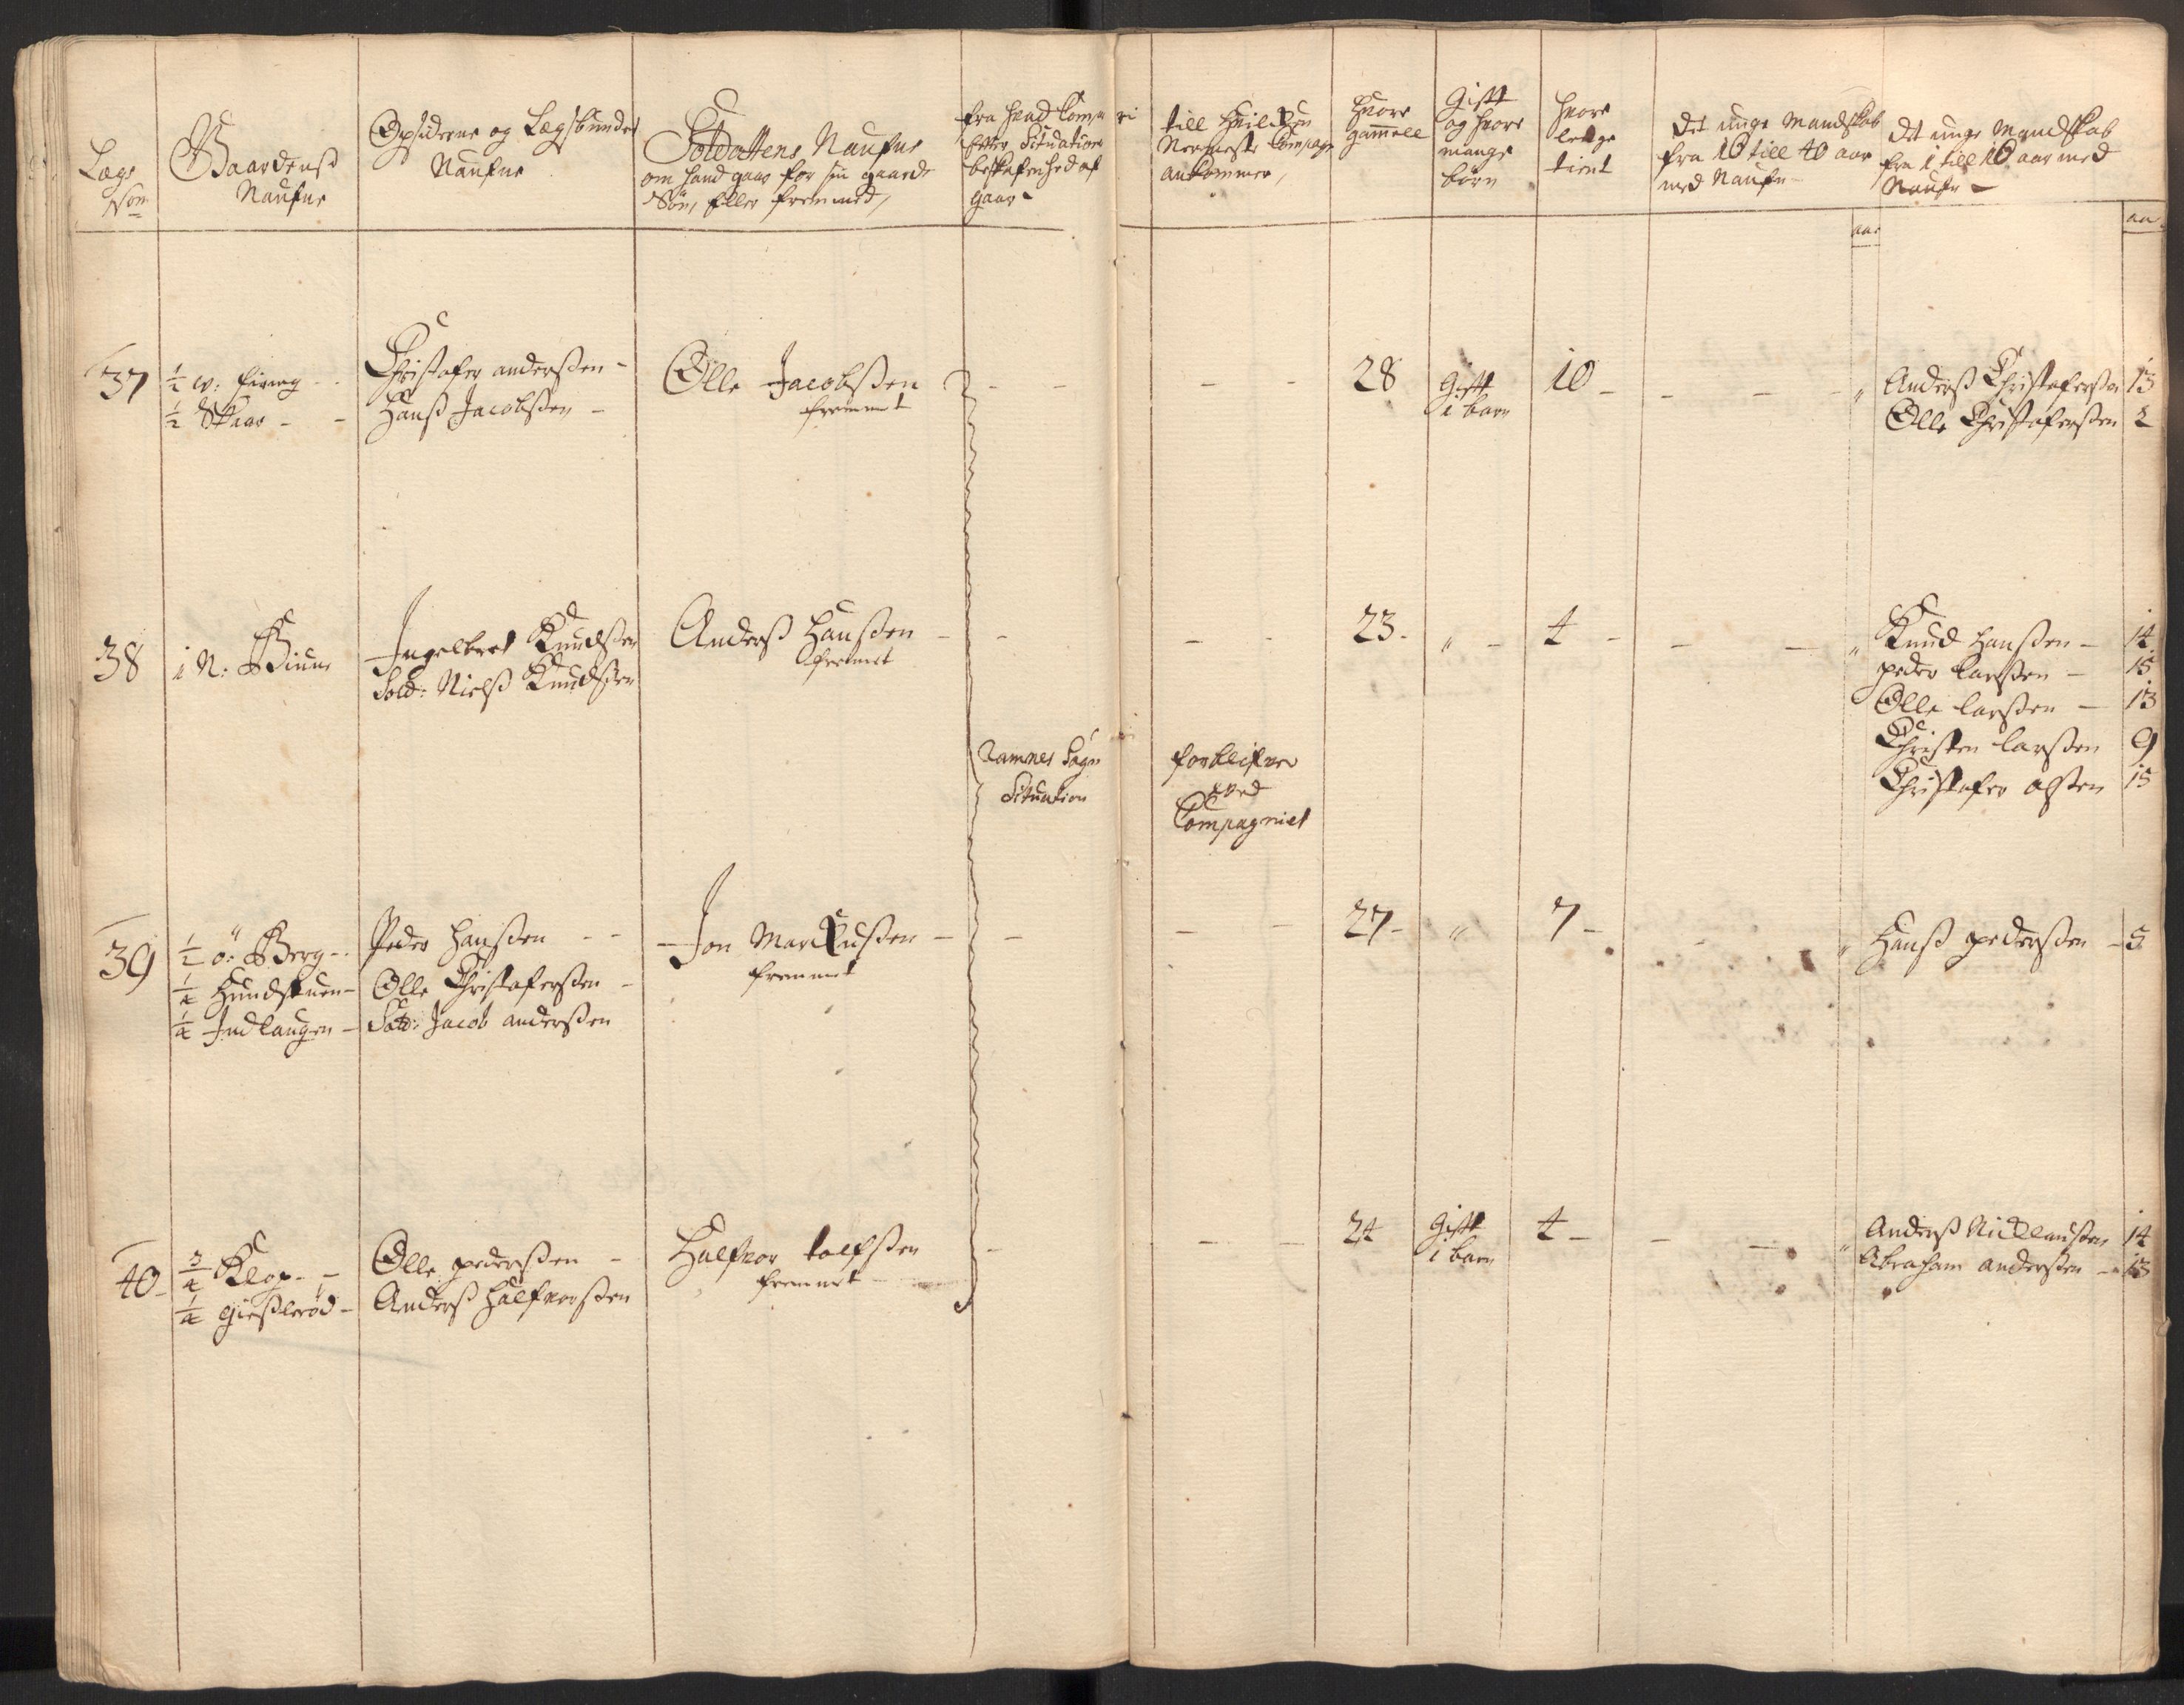 Lægs
Nom
Gaardenß
Naufne
Opsiderne og Lægsbunder
Naufne
Soldattens Naufne
om hand gaar for sin gaard
Søn, eller fremmed,
fra hvad Compagni
efter Situations
beskafenhed af
gaar
till hvilcken
Nermeste Compag
ankommer,
hvor
gammell
Gift
og hvor
mange
børn
hvor
lenge
tient
det unge Mandskab
fra 16 till 40 aar
med Naufn
aar
det unge Mandskab
fra 1 till 16 aar med
Naufn
aar
37
½ w: firing
½ Skaar
Christofer anderßen
Hanß Jacobßen
Olle Jacobßen
fremmet
28
Gift
1 barn
10
Anderß Christoferßen 13
Olle Christoferßen 2
38
1 N: Biune
Ingelbret Knudßen
Sold: Nielß Knudßen
Anderß Hanßen
fremmet
23
4
Knud Hanßen 14
peder larßen 15
Olle larßen 13
Christen larßen 9
Christofer olßen 15
Ramnes Sogn
Situation
forblifver
ved
Compagniet
39
½ ö: Berg
¼ Hundstuen
¼ Indlaugen
Peder Hanßen
Olle Christoferßen
Sold: Jacob anderßen
Jon Marckußen
fremmet
27
7
Hanß pederßen 5
40
¾ Klop
¼ gießlerød
Olle pederßen
Anderß Halfvorßen
Halfvor tolfßen
fremmet
24
Gift
1 barn
4
Anderß Nicklaußen 14
Abraham anderßen 13